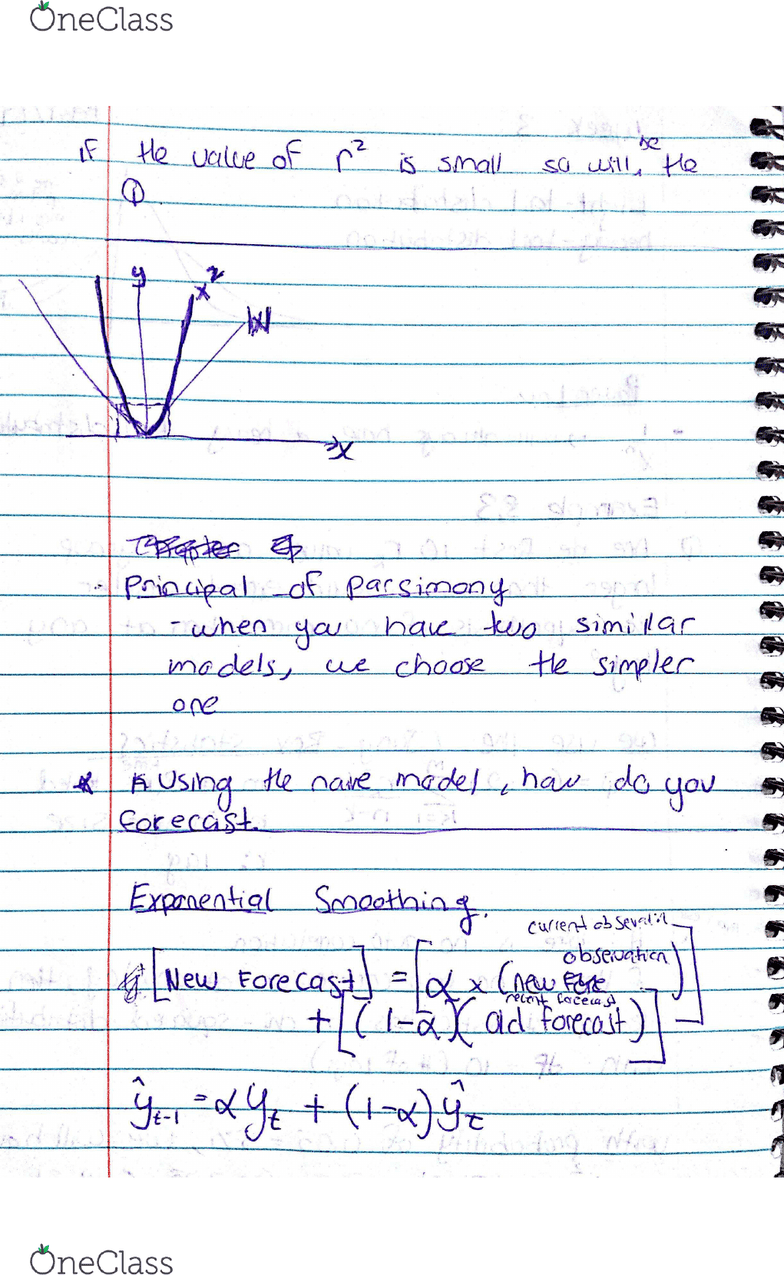 OneClass
If the value of r² is small so will be the
Q
y
x²
|x|
x
Chapter
Principal of parsimony
- when you have two similar
models, we choose the simpler
one
* Using the naive model, how do you
forecast.
Exponential Smoothing.
current observatn
observation
[New Forecast] = [α x (new fore)]
recent forecast
+ [(1-α)(old forecast)]
ŷt-1 = αyt + (1-α)ŷt
OneClass